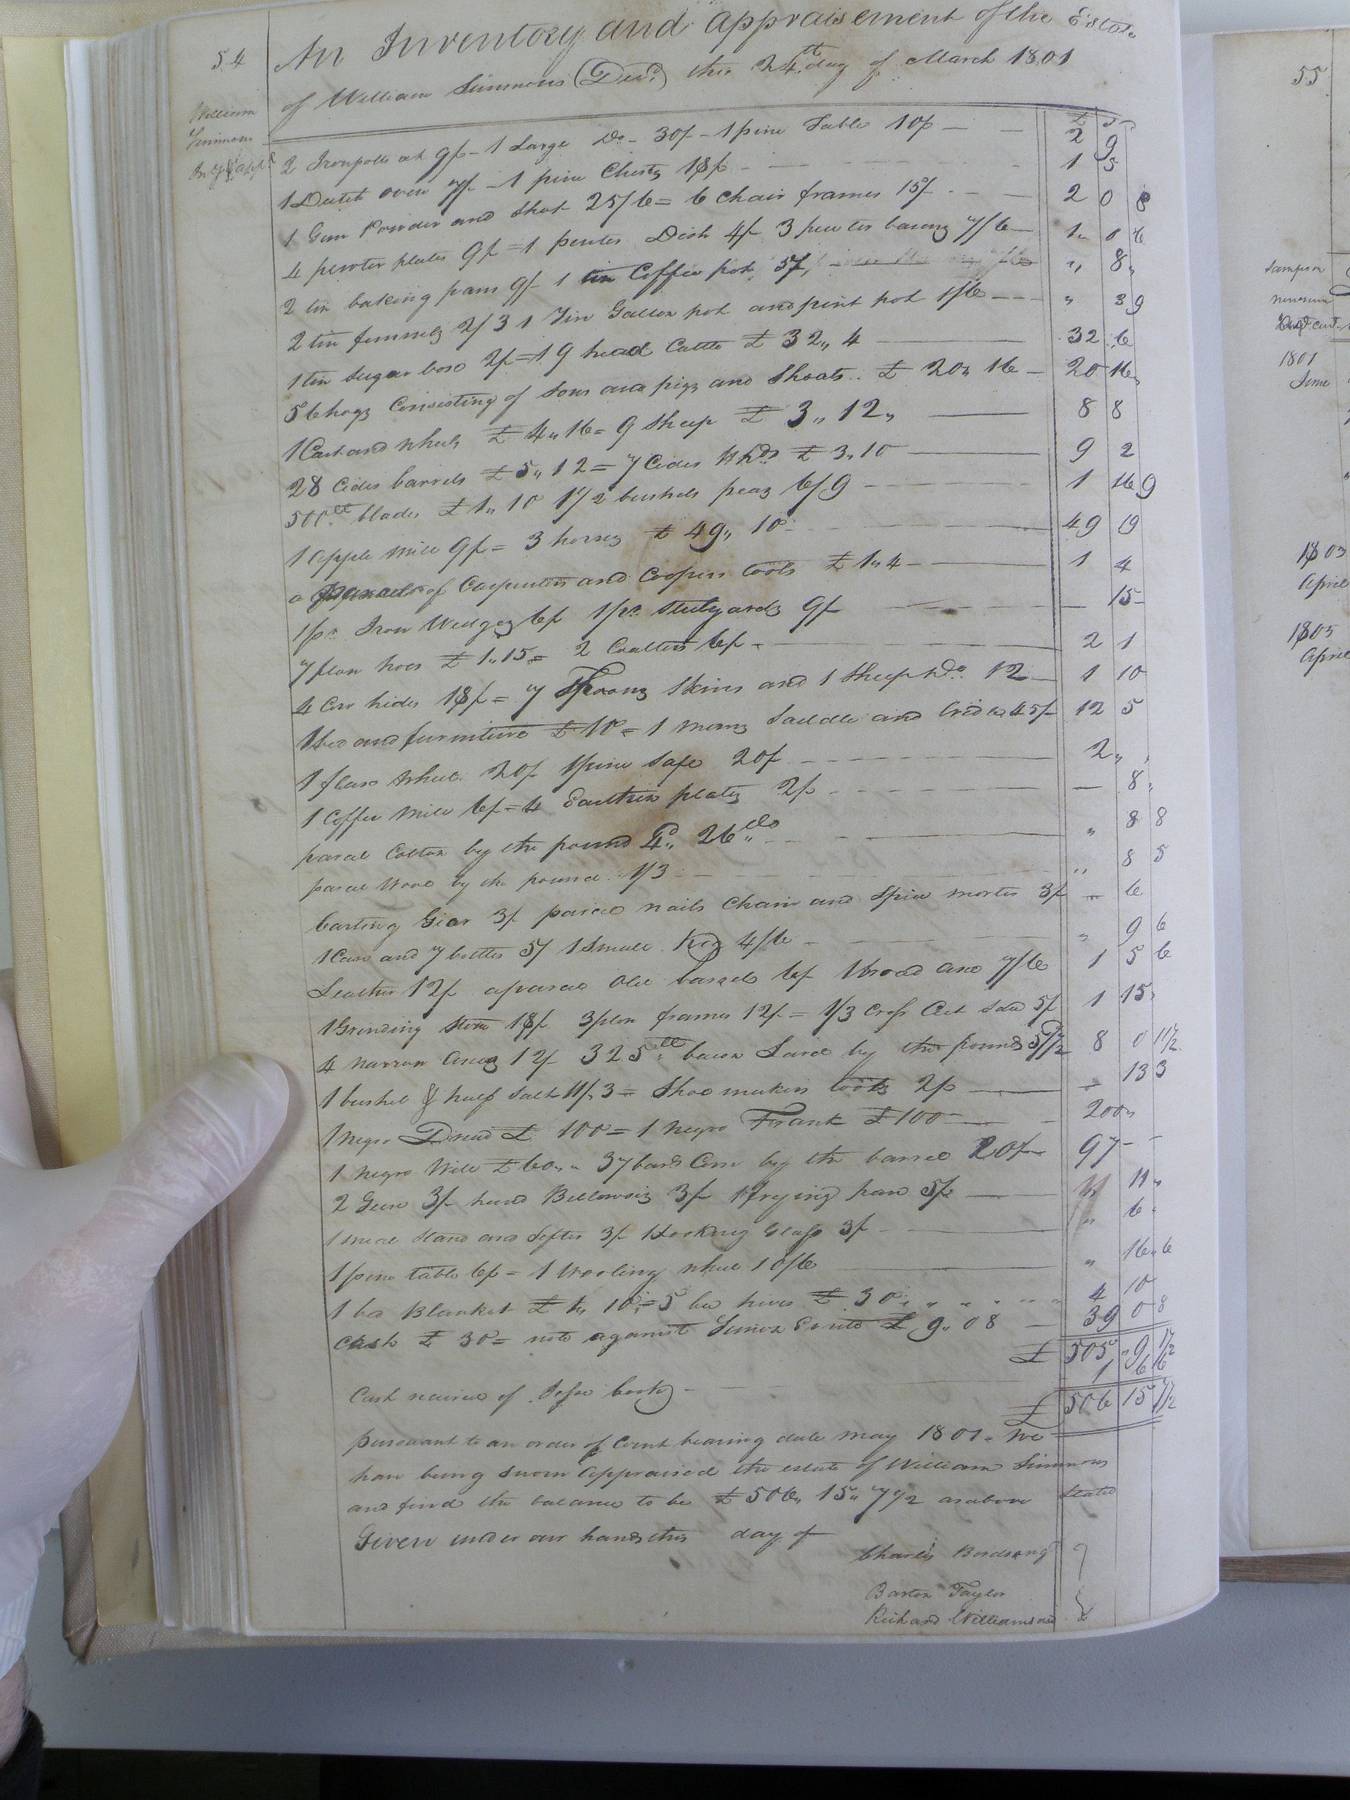 54
An Inventory and appraisement of the Estate
of William Simmons (Decd) this 24th day of March 1801
William
Simmons
£ S
2 Iron potts at 9/ - 1 Large Do - 30/ - 1 pine Table 10/ — — 2 9
1 Dutch oven 7/ - 1 pine Chest 18/ - 1 5
1 Gun Powder and Shot 25/6 = 6 Chair frames 15/ - 2 0 8
4 pewter plates 9/ = 1 pewter Dish 4/ 3 pewter basons 7/6 — 1 0 6
2 tin baking pans 9/ 1 tin Coffee pot 5/, „ 8„
2 tin funnels 2/3 1 Tin Gallon pot and pint pot 1/6 --- „ 3 9
1 tin Sugar box 2/ = 19 head Cattle £ 32„ 4 — 32 6
56 hogs Consisting of Sows and pigs and Shoats £ 20„ 16 — 20 16„
1 Cart and wheels £ 4„ 16 = 9 Sheep £ 3„ 12„ — 8 8
28 Cider barrels £ 5„ 12 = 7 Cider Hhds £ 3„ 10 — 9 2
500 lb blades £ 1„ 10 1 1/2 bushels peas 6/9 — 1 16 9
1 apple mill 9/ = 3 horses £ 49„ 10 - 49 19
a parcel of Carpenters and Coopers tools £ 1„ 4 — 1 4
1 pr Iron Wedges 6/ 1 pr Steelyards 9/ — 15 -
7 plow hoes £ 1„ 15 = 2 Coulters 6/ - 2 1
4 Cow hides 18/ = 7 Skins and 1 Sheep Do 12 — 1 10
1 bed and furniture £ 10 = 1 mans Saddle and bridle 45/ 12 5
1 flax wheel 20/ 1 pine Safe 20/ 2„
1 Coffee mill 6/ = 4 Earthen plates 2/ - — 8„
parcel Cotton by the pound 4„ 26 lbs „ 8 8
parcel wool by the pound 1/3 „ 8 5
Carting Gear 3/ parcel nails Chain and Spice morter 3/ — 6
1 Case and 7 bottles 5/ 1 Small Keg 4/6 - „ 9 6
Leather 12/ a parcel old barrels 6/ 1 broad axe 7/6 1 5 6
1 Grinding Stone 18/ 3 plow frames 12/ = 1/3 Cross Cut Saw 5/ 1 15„
4 narrow axes 12/ 325 lb bacon Lard by the pound 5 1/2 8 0 11 1/2
1 bushel & half Salt 11/3 = Shoe makers tools 2/ — 13 3
1 Negro £ 100 = 1 negro Frank £ 100 — 200„
1 negro Will £ 60„ „ 37 bars Corn by the barrel 20/ 97 -
2 Geese 3/ hand Bellowses 3/ 1 frying pan 5/ — 11„
1 meal Stand and Sifter 3/ 1 Looking Glass 3/ - „ 6„
1 pine table 6/ = 1 Wooling wheel 10/6 „ 16„ 6
1 bed Blanket £ 1„ 10 = 5 bee hives £ 30 4 10
Cash £ 30 = note against £ 9„ 08 — 39 0 8
£ 505 „ 9 1 1/2
Cash received of 1 6 6
£ 506 15 7 1/2
pursuant to an order of Court bearing date may 1801. We
have being Sworn appraised the estate of William Simmons
and find the balance to be £ 506„ 15„ 7 1/2 as above Stated
Given under our hands this day of
Charles Birdsong
Barton Taylor
Richard Williamson
55
Sampson
1801
June
1803
April
1805
April